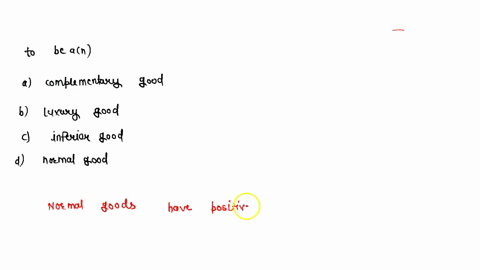 to be a(n)
a) complementary good
b) luxury good
c) inferior good
d) normal good
Normal goods have positiv